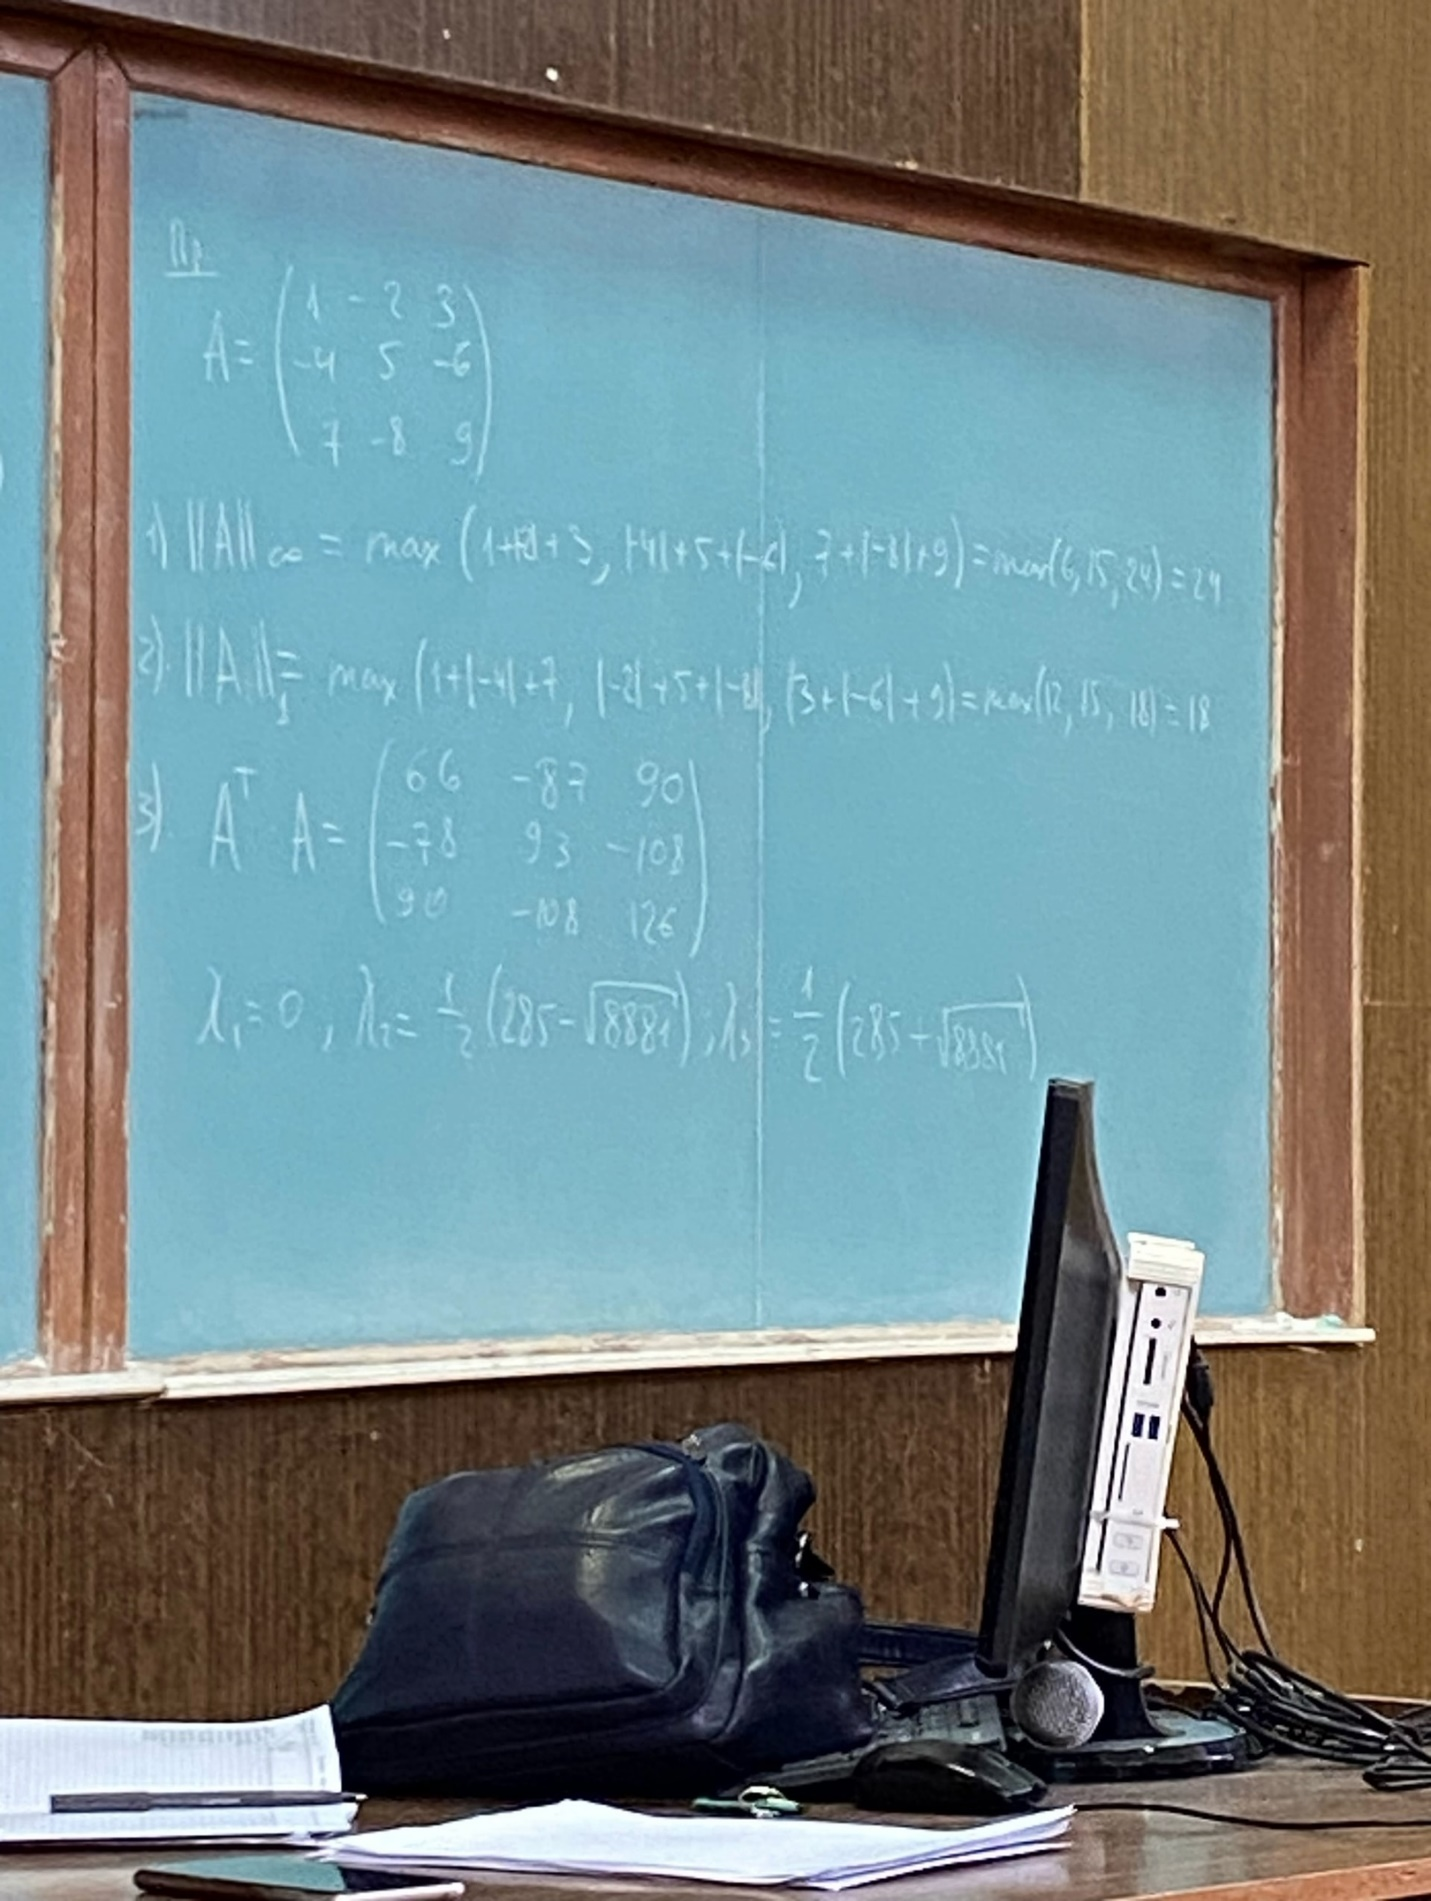 Пр
A = ( 1 -2 3
-4 5 -6
7 -8 9 )
1) ||A||∞ = max (1+|-2|+3, |-4|+5+|-6|, 7+|-8|+9) = max(6, 15, 24) = 24
2). ||A||₁ = max (1+|-4|+7, |-2|+5+|-8|, |3+|-6|+9) = max(12, 15, 18) = 18
3). Aᵀ A = ( 66 -87 90
-78 93 -108
90 -108 126 )
λ₁ = 0, λ₂ = 1/2 (285 - √8881); λ₃ = 1/2 (285 + √8881)